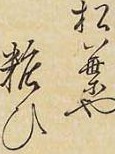 松葉や
粧ひ